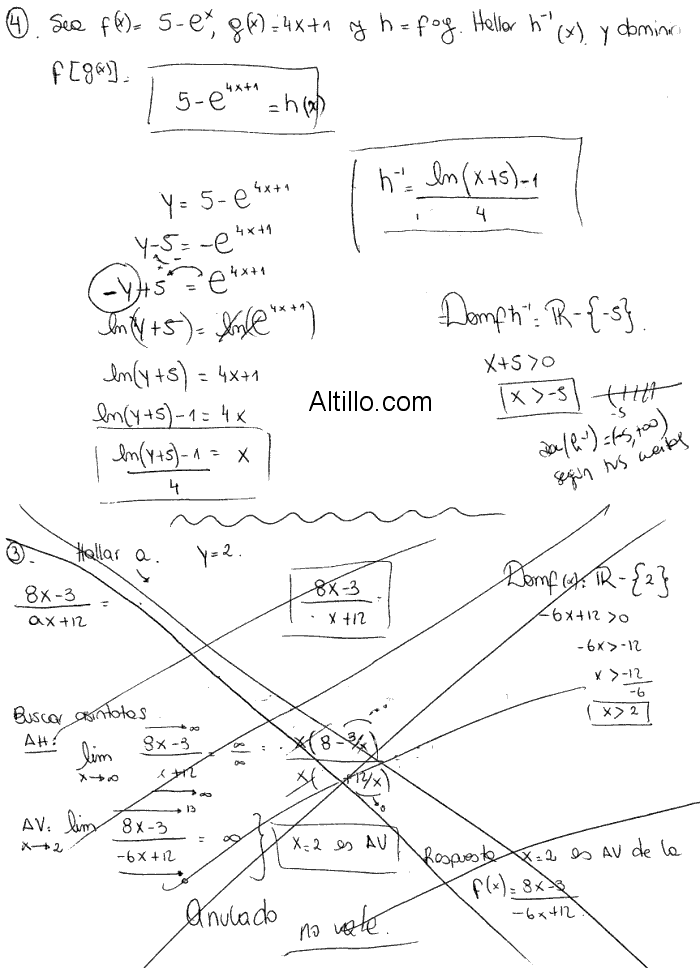 ④. Sea f(x)= 5-e^x, g(x)=4x+1 y h = fog. Hallar h^-1(x). y dominio
f[g(x)]= 5-e^(4x+1) = h(x)
h^-1 = (ln(x+5)-1)/4
y = 5-e^(4x+1)
y-5 = -e^(4x+1)
-y+5 = e^(4x+1)
ln(y+5) = ln(e^(4x+1))
ln(y+5) = 4x+1
ln(y+5)-1 = 4x
(ln(y+5)-1)/4 = x
Domf h^-1: ℝ-{-5}.
x+5>0
x>-5
-5
(h^-1)=(-5,+∞)
según tus cuentas
Altillo.com
③. Hallar a. y=2.
(8x-3)/(ax+12) =
(8x-3)/(x+12) =
Domf(x): ℝ-{2}
-6x+12>0
-6x>-12
x>-12/-6
x>2
Buscar asíntotas
AH: lim x→∞ (8x-3)/(x+12) = ∞/∞ = x(8-3/x)/x( +12/x)
AV: lim x→2 (8x-3)/(-6x+12) = ∞ } x=2 es AV
Respuesta x=2 es AV de la
f(x)=(8x-3)/(-6x+12).
Anulado
no vale.